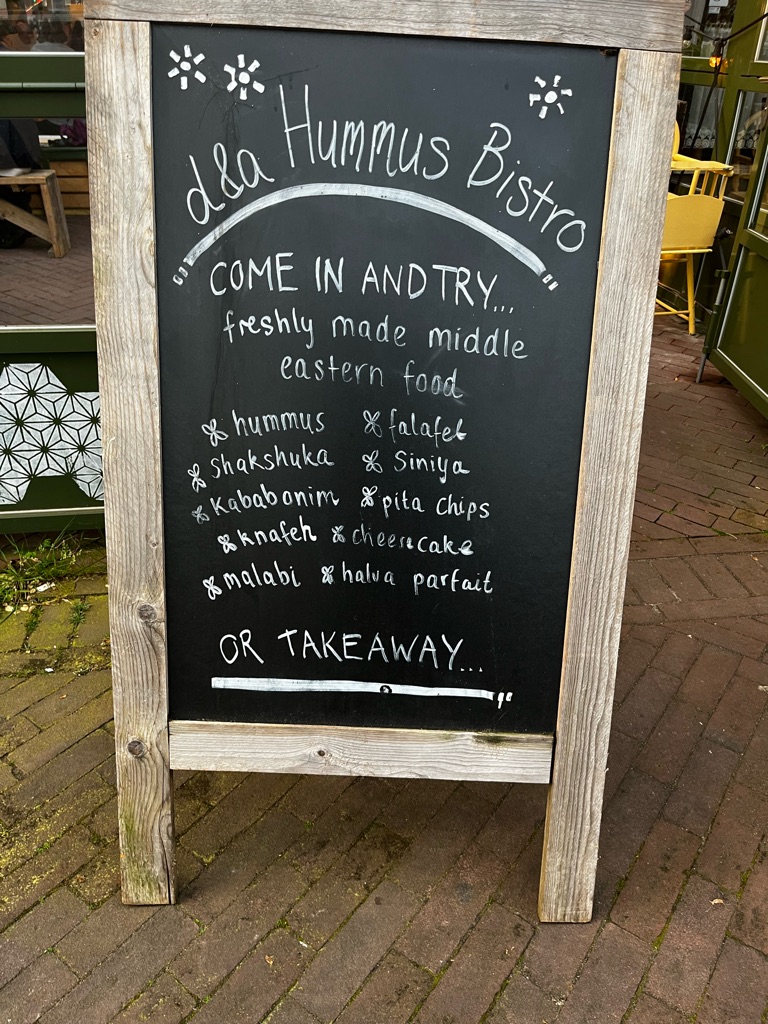 d&a Hummus Bistro
COME IN AND TRY...
freshly made middle
eastern food
hummus falafel
Shakshuka Siniya
Kababonim pita chips
knafeh cheesecake
malabi halva parfait
OR TAKEAWAY...